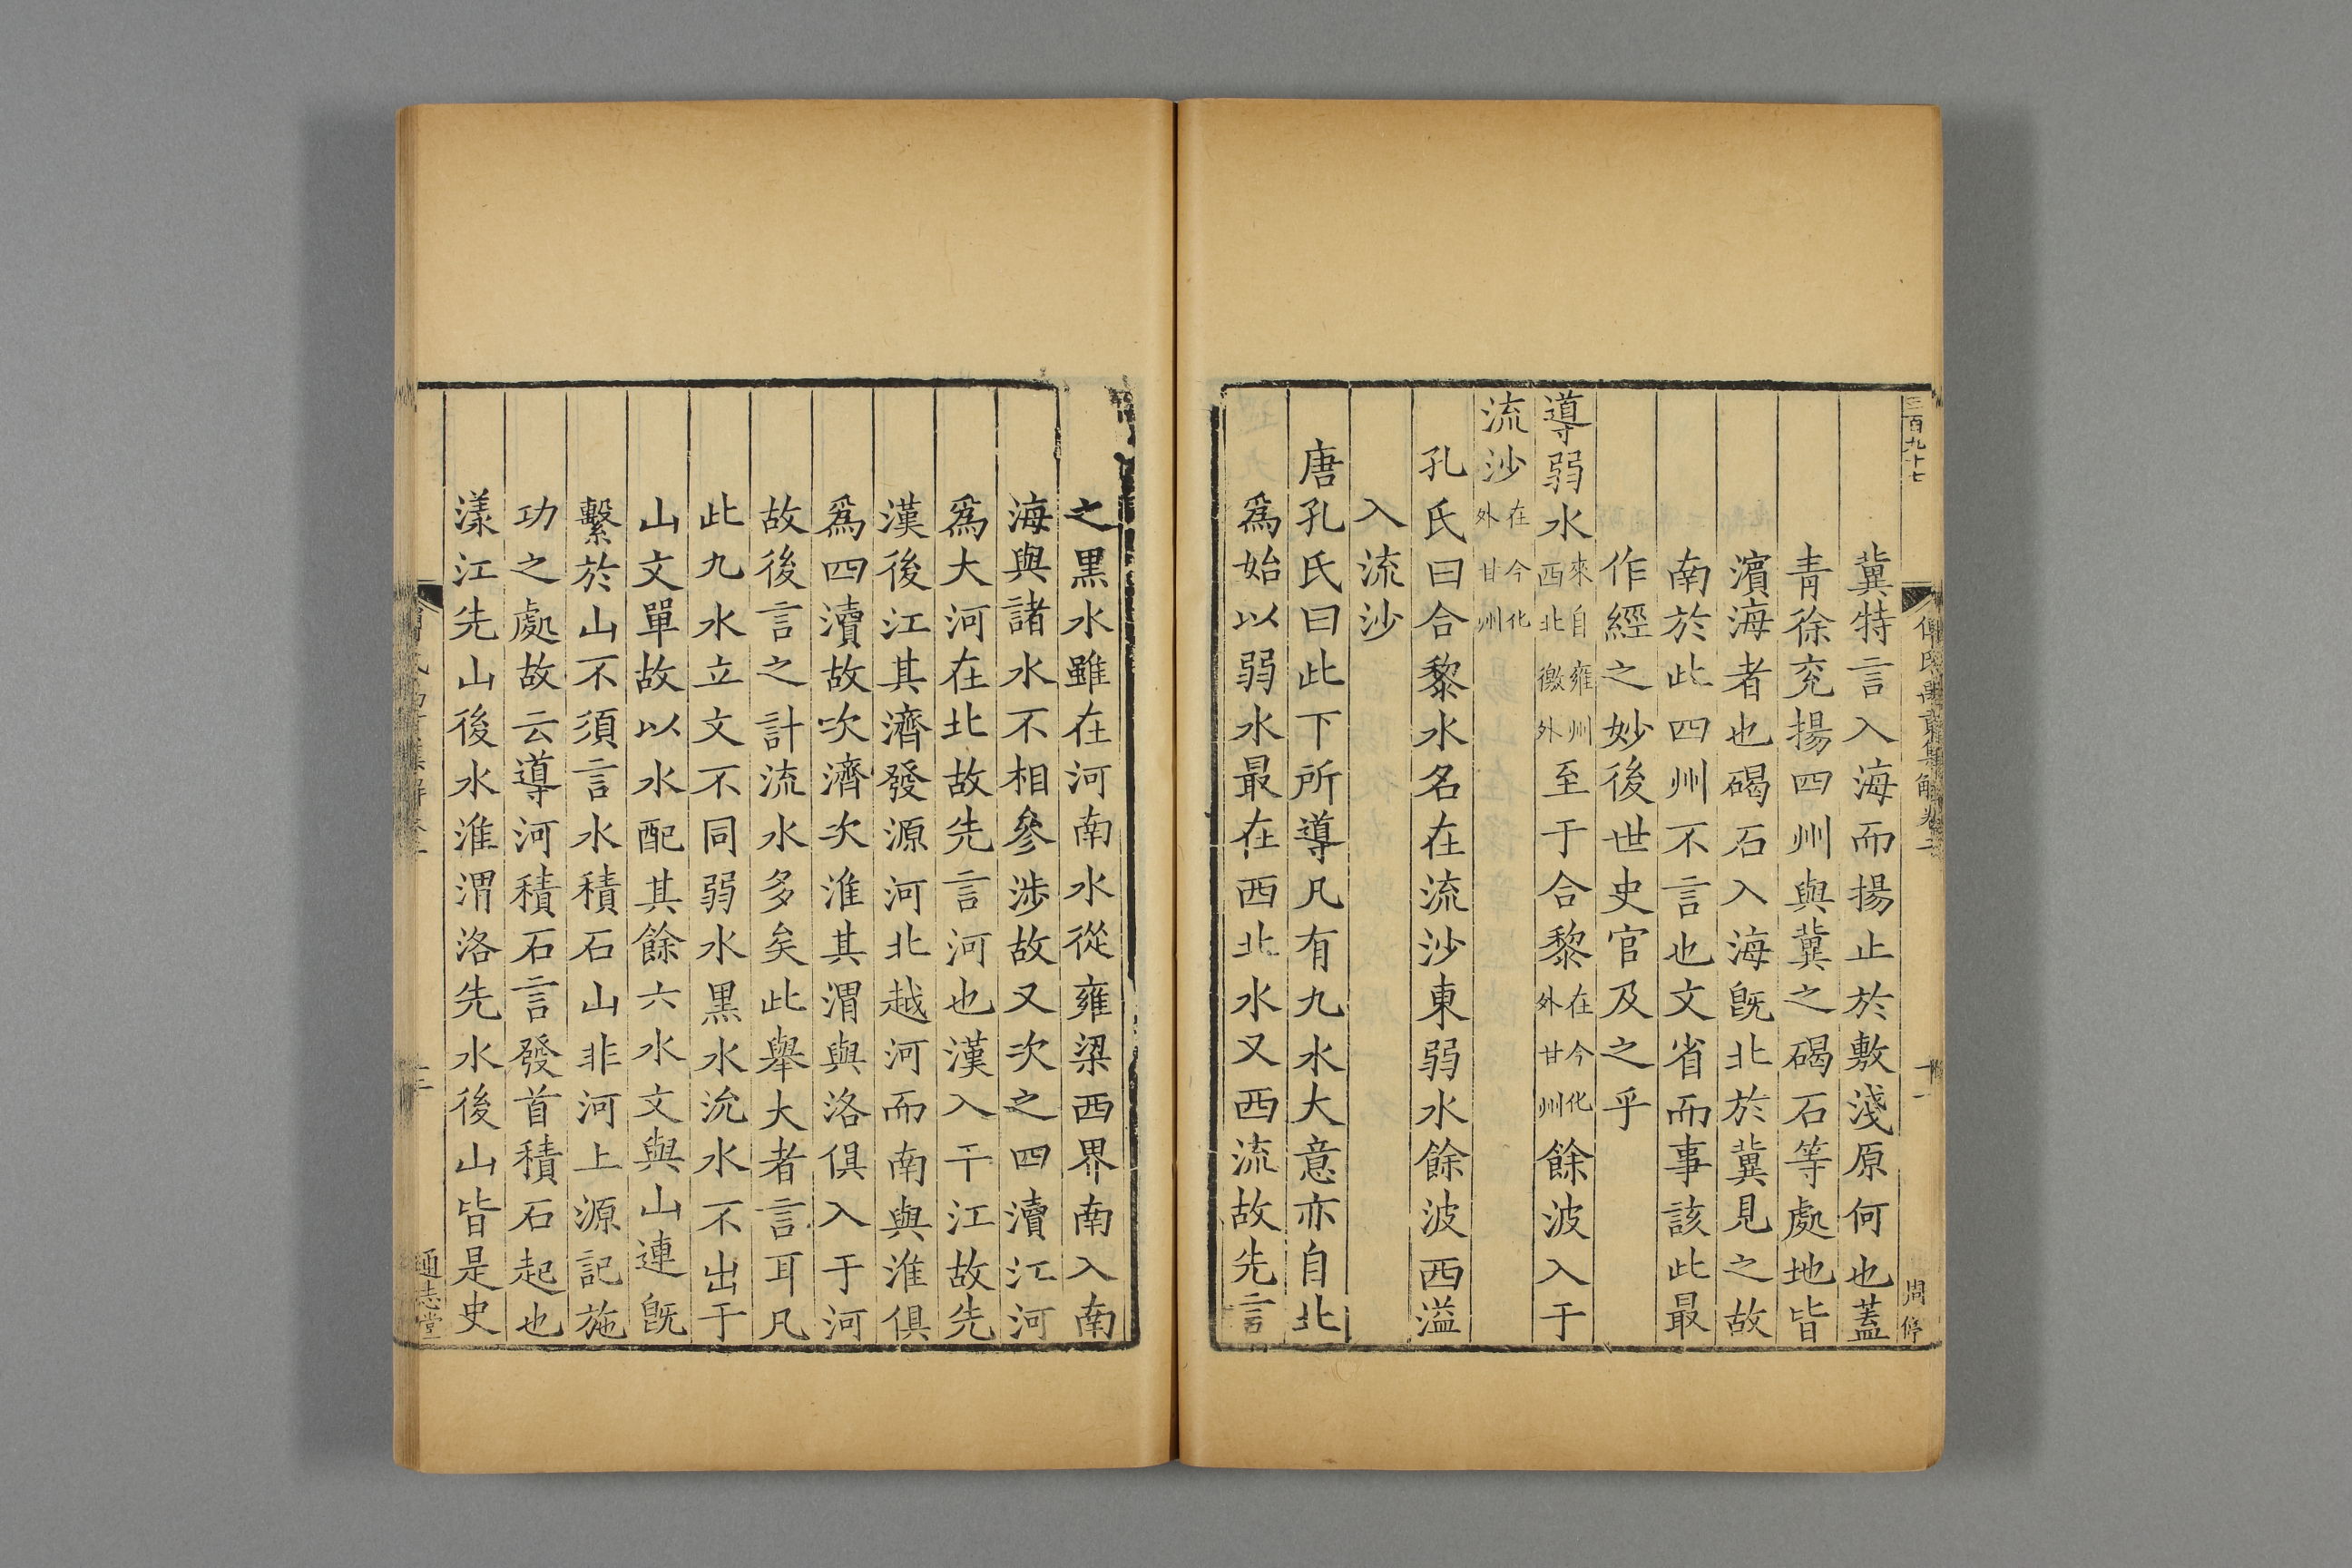 三百九十七
傅氏禹貢集解卷二
周停
冀特言入海而揚止於敷淺原何也蓋
青徐兖揚四州與冀之碣石等處地皆
濵海者也碣石入海旣北於冀見之故
南於此四州不言也文省而事該此最
作經之妙後世史官及之乎
導弱水來自雍州西北徼外至于合黎在今化外甘州餘波入于
流沙在今化外甘州
孔氏曰合黎水名在流沙東弱水餘波西溢
入流沙
唐孔氏曰此下所導凡有九水大意亦自北
爲始以弱水最在西北水又西流故先言
之黒水雖在河南水從雍梁西界南入南
海與諸水不相參涉故又次之四瀆江河
爲大河在北故先言河也漢入于江故先
漢後江其濟發源河北越河而南與淮俱
爲四瀆故次濟次淮其渭與洛俱入于河
故後言之計流水多矣此舉大者言耳凡
此九水立文不同弱水黒水沇水不出于
山文單故以水配其餘六水文與山連旣
繫於山不須言水積石山非河上源記施
功之處故云導河積石言發首積石起也
漾江先山後水淮渭洛先水後山皆是史
通志堂